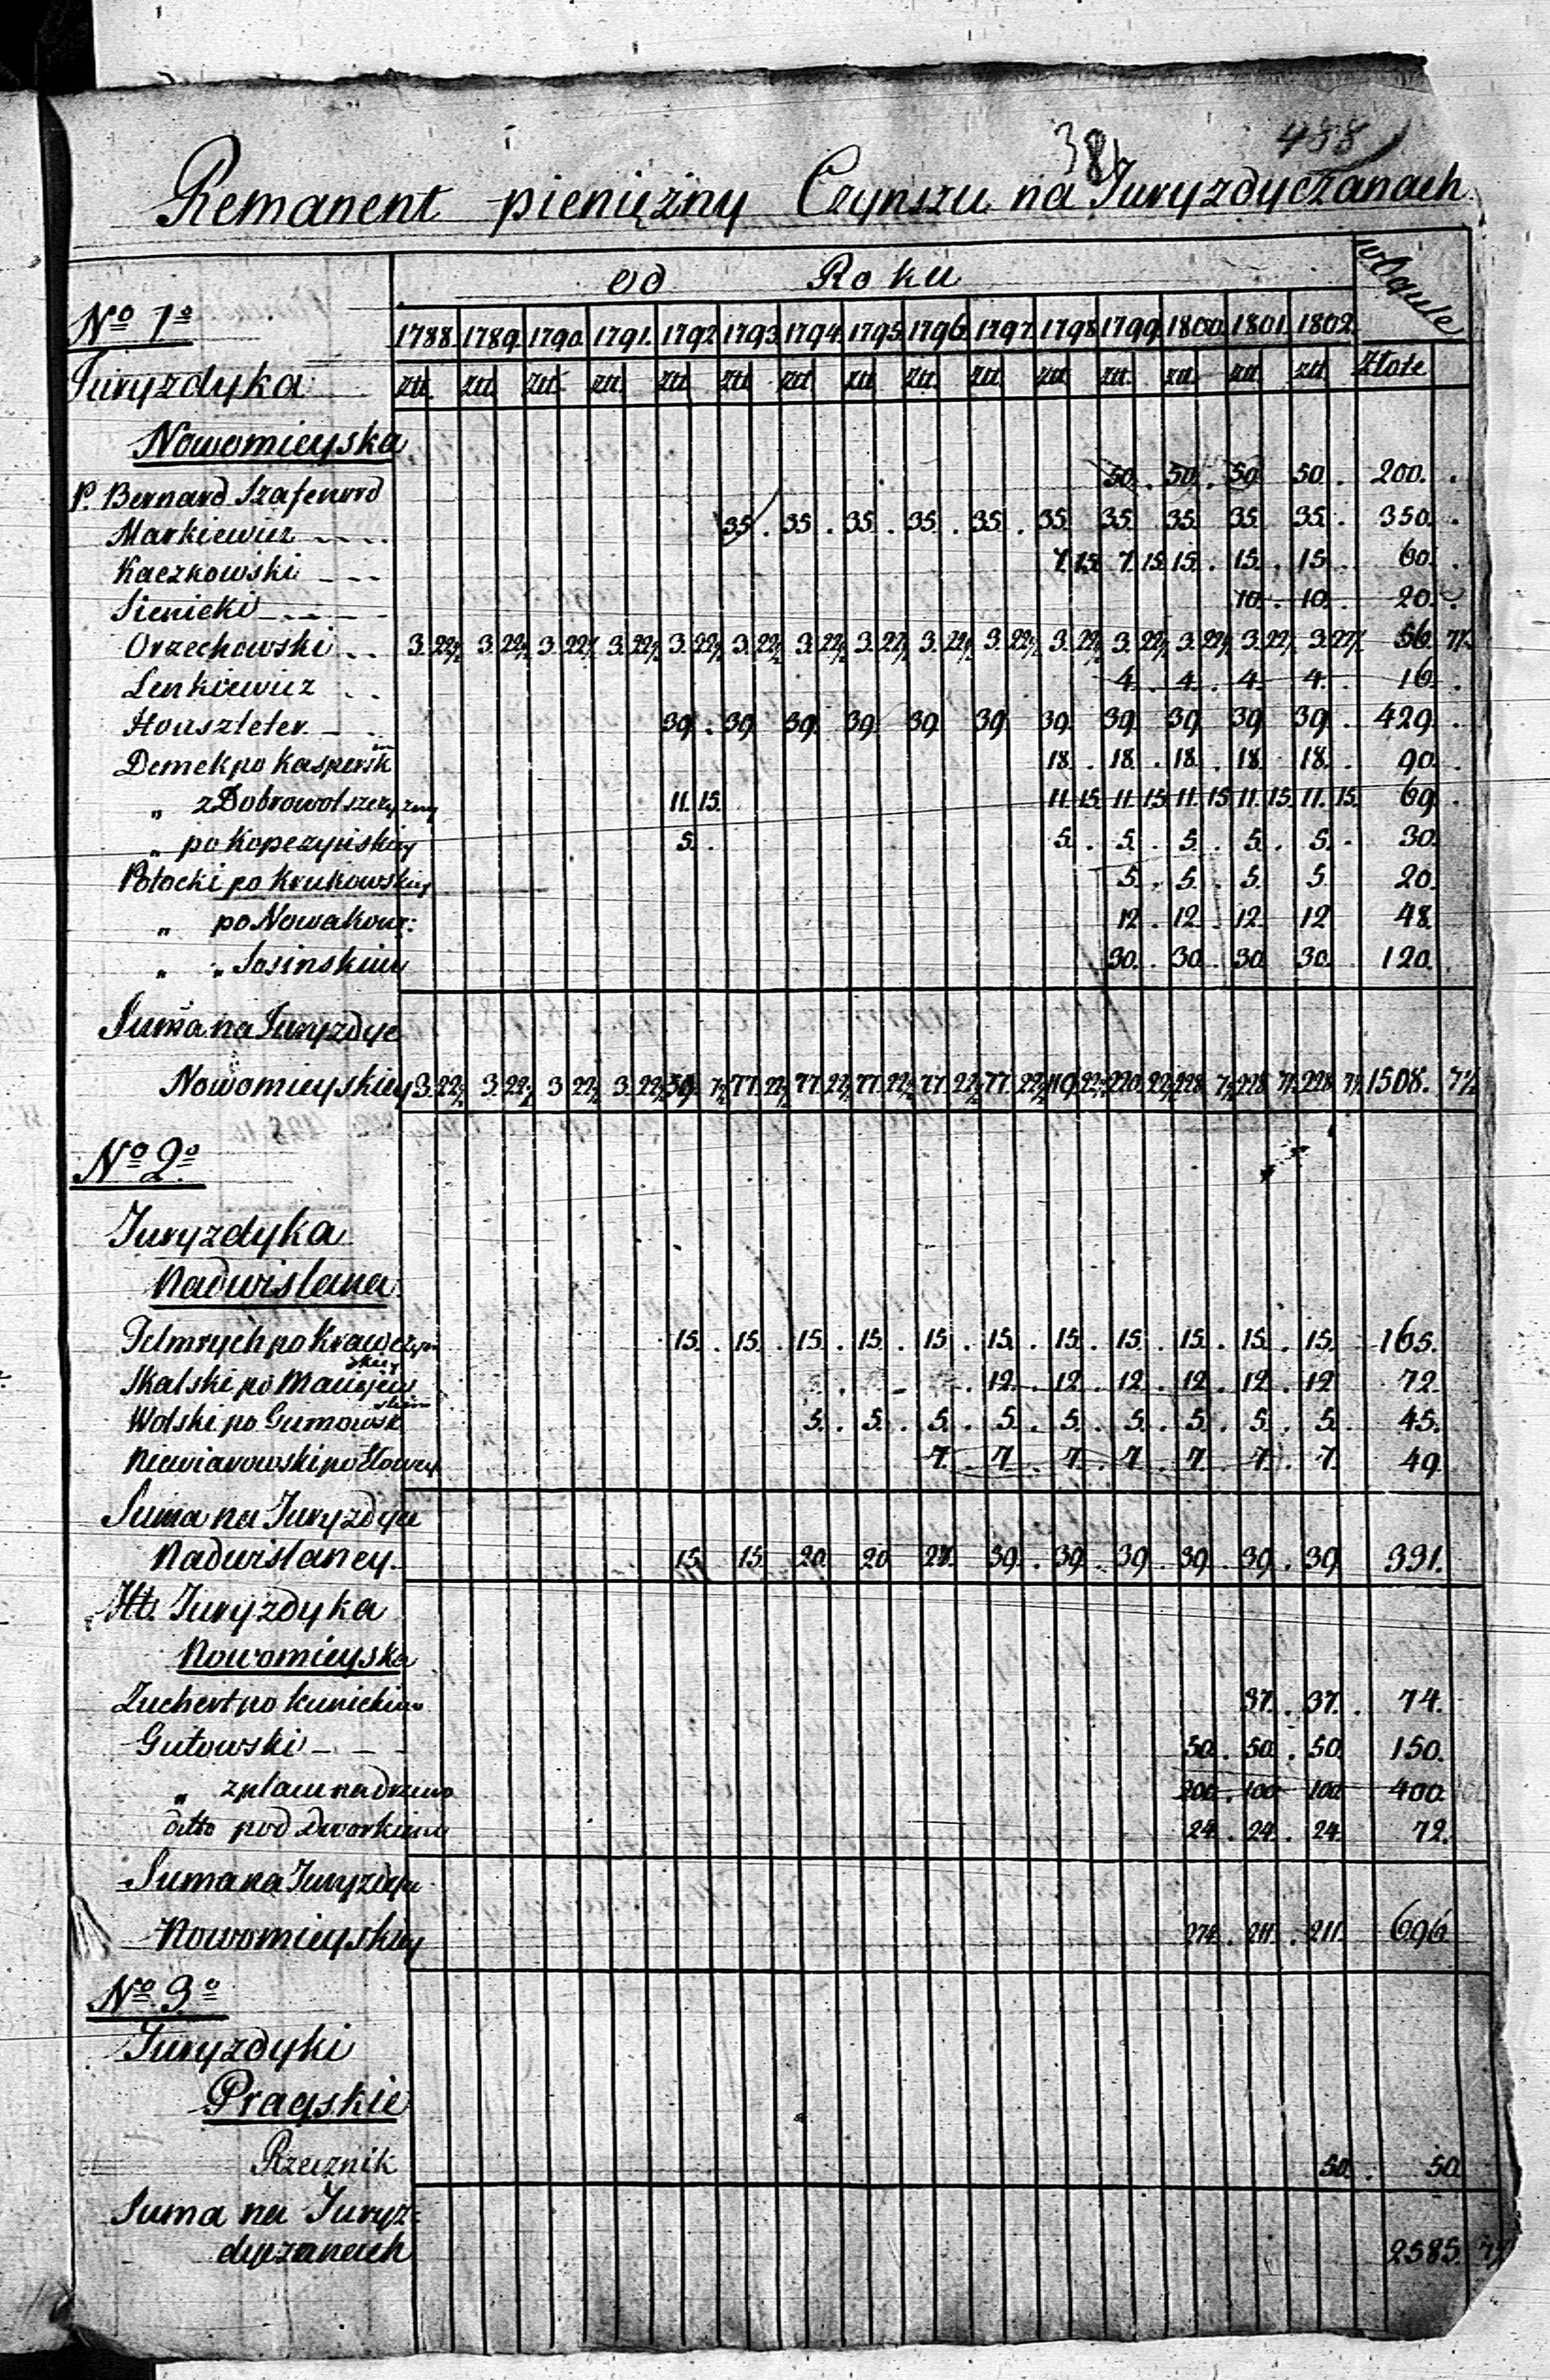 488
38
Remanent pieniężny Czynszu na Juryzdyczanach
od Roku
w Ogule
No 1o
1788. 1789. 1790. 1791. 1792. 1793. 1794. 1795. 1796. 1797. 1798. 1799. 1800. 1801. 1802.
Juryzdyka złł. złł. złł. złł. złł. złł. złł. złł. złł. złł. złł. złł. złł. złł. złł. Złote
Nowomieyska
P. Bernard Szafenord 50. 50. 50. 50. 200.
Markiewicz 35. 35. 35. 35. 35. 35. 35. 35. 35. 35. 350.
Kaczkowski 7. 15. 7. 15. 15. 15. 15. 60.
Sienicki 10. 10. 20.
Orzechowski 3. 22½ 3. 22½ 3. 22½ 3. 22½ 3. 22½ 3. 22½ 3. 22½ 3. 22½ 3. 22½ 3. 22½ 3. 22½ 3. 22½ 3. 22½ 3. 22½ 3. 22½ 56. 7½
Lenkiewicz 4. 4. 4. 4. 16.
Houszteter 39. 39. 39. 39. 39. 39. 39. 39. 39. 39. 39. 429.
Demek po Kaspersk 18. 18. 18. 18. 18. 90.
„ z Dobrowolszczyzny 11. 15. 11. 15. 11. 15. 11. 15. 11. 15. 11. 15. 69.
„ po Kopczyńskiey 5. 5. 5. 5. 5. 5. 30.
Potocki po Krukowskiey 5. 5. 5. 5. 20.
„ po Nowakows: 12. 12. 12. 12 48.
„ „ Sosinskim 30. 30. 30. 30. 120.
Suma na Juryzdyc
Nowomieyskiey 3. 22½ 3. 22½ 3 22½ 3. 22½ 59. 7½ 77. 22½ 77. 22½ 77. 22½ 77. 22½ 77. 22½ 119. 22½ 220. 22½ 228. 7½ 228. 7½ 228. 7½ 1508. 7½
No 2o
Juryzdyka
Nadwislana
po 15. 15. 15. 15. 15. 15. 15. 15. 15. 15. 15. 165.
Skalski po Maciejew skiey 12. 12. 12. 12. 12. 12 72.
Wolski po Gumowsk skim 5. 5. 5. 5. 5. 5. 5. 5. 5. 45.
Niewiarowski po 7. 7. 7. 7. 7. 7. 7. 49
Suma na Juryzdyce
Nadwislaney. 15. 15. 20. 20 27. 39. 39. 39. 39. 39. 39. 331.
Juryzdyka
Nowomieyska
Zuchert po Kunickim 37. 37. 74.
Gutowski 50. 50. 50. 150.
„ z placu na drzewo 200. 100 100 400
ditto pod Dworkiem 24. 24. 24. 72.
Suma na Juryzdyc
Nowomieyskiey 274. 211. 211. 696
No 3o
Juryzdyki
Pragskie
Rzecznik 50. 50
Suma na Juryz-
dyczanach 2585. 7½